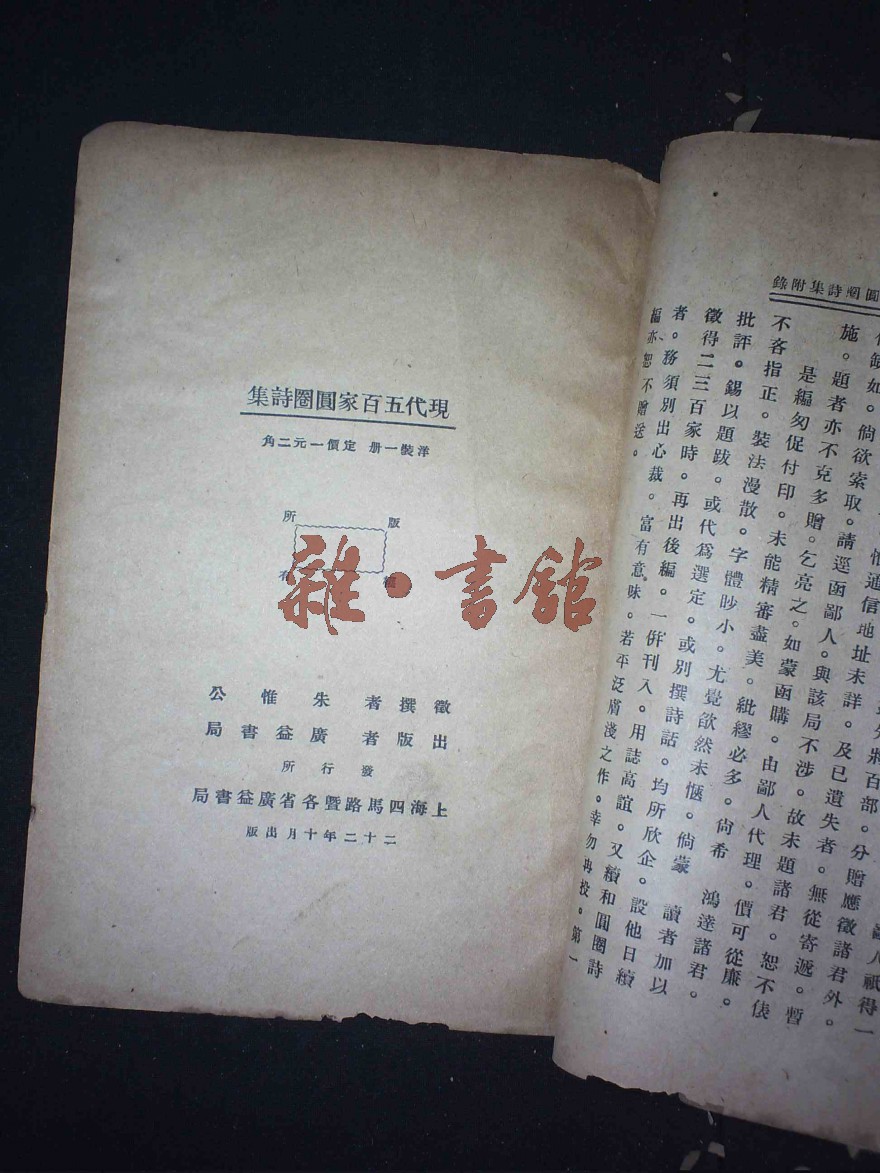 現代五百家圓圈詩集
洋裝一册 定價一元二角
版
所
有
徵撰者 朱惟公
出版者 廣益書局
發行所
上海四馬路暨各省廣益書局
二十二年十月出版
雜·書館
圓圈詩集附錄
通信地址未詳。及已遺失者。無從寄遞。暫
施。題者亦不克多贈。乞亮之。如蒙函購。由鄙人代理。價可從廉。
是編匆促付印。未能精審盡美。紕繆必多。尙希 鴻達諸君。
不吝指正。裝法漫散。字體眇小。尤覺欿然未愜。倘蒙 讀者加以
批評。錫以題跋。或代爲選定。或別撰詩話。均所欣企。設他日續
徵得二三百家時。再出後編。一併刊入。用誌高誼。又續和圓圈詩
者。務須別出心裁。富有意味。若平泛膚淺之作。幸勿再投。第一
編亦恕不贈送。